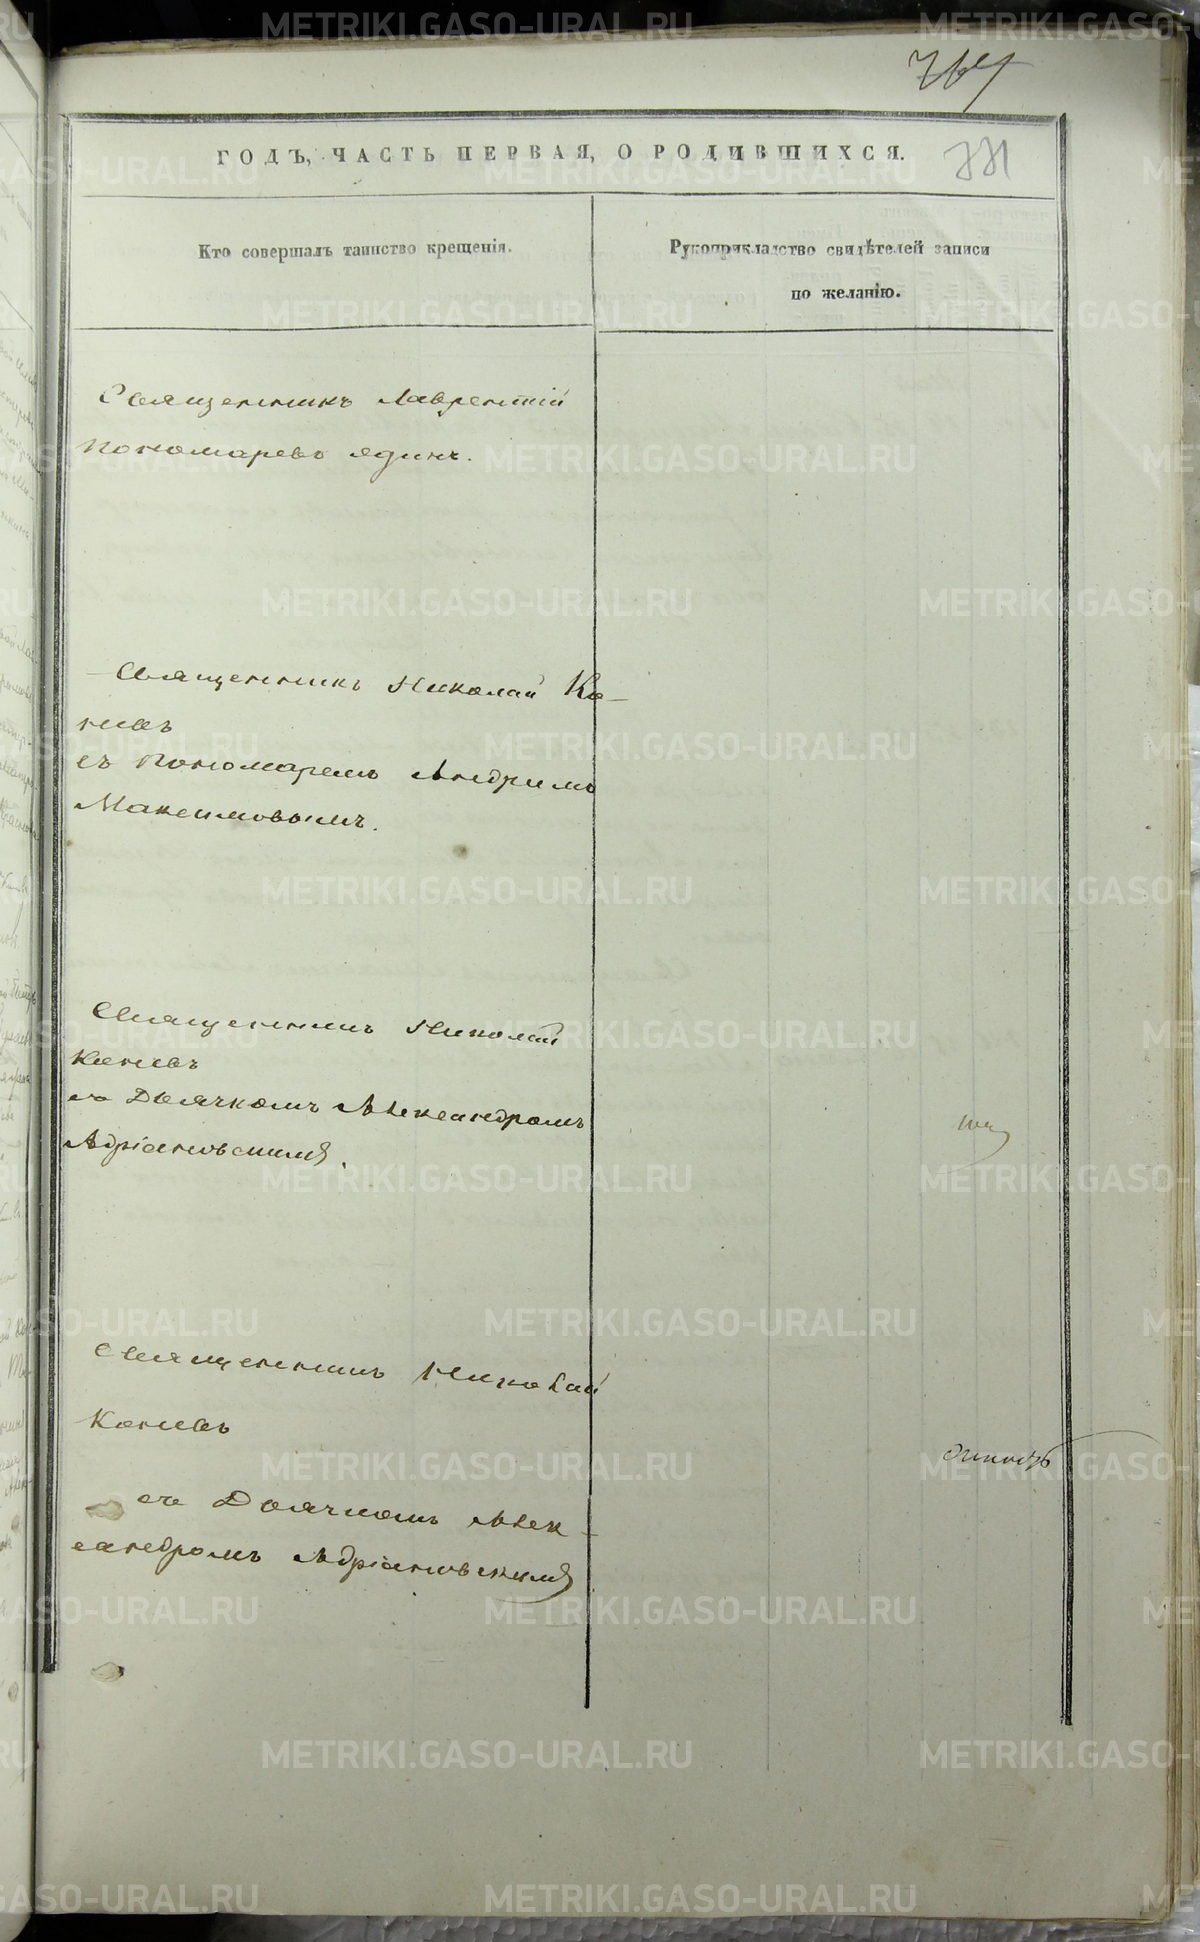 ГОДЪ, ЧАСТЬ ПЕРВАЯ, О РОДИВШИХСЯ.
Кто совершалъ таинство крещенія.
Рукоприкладство свидѣтелей записи
по желанію.
Священникъ Лаврентій
Пономаревъ единъ.
Священникъ Николай Ко-
невъ
съ Пономаремъ Андреемъ
Максимовымъ.
Священникъ Николай
Коневъ
съ Дьячкомъ Александромъ
Адріановскимъ.
Священникъ Николай
Коневъ
съ Дьячкомъ Алек-
сандромъ Адріановскимъ
METRIKI.GASO-URAL.RU